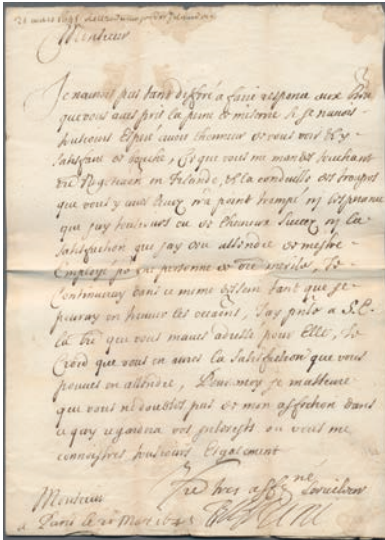 21 mars 1645
Monsieur
Je naurois pas tant differé a faire response aux
que vous aves pris la peine de mescrire si je navois
tousiours esperé avoir lhonneur de vous voir & dy
satisfaire de bouche, Ce que vous me mandes touchant
en Irlande, & la conduitte des troupes
que vous y aves n'a point trompé ny lesperance
que jay tousiours eu de lheureux succez ny la
satisfaction que jay deu attendre de mestre
Employé pour une personne de vre merite, Je
Continueray dans ce mesme dessein tant que je
pourray en trouver les occasions, Jay a S.
la lre que vous maves adressé pour Elle, Je
Croy que vous en aures la satisfaction que vous
pouves en attendre, Pour moy je masseure
que vous ne doubtes pas de mon affection dans
ce qui regardera vos interests ou vous me
connoistres tousiours Esgalement
Vre tres affné serviteur
Monsieur
a Paris le 21 Mars 1645